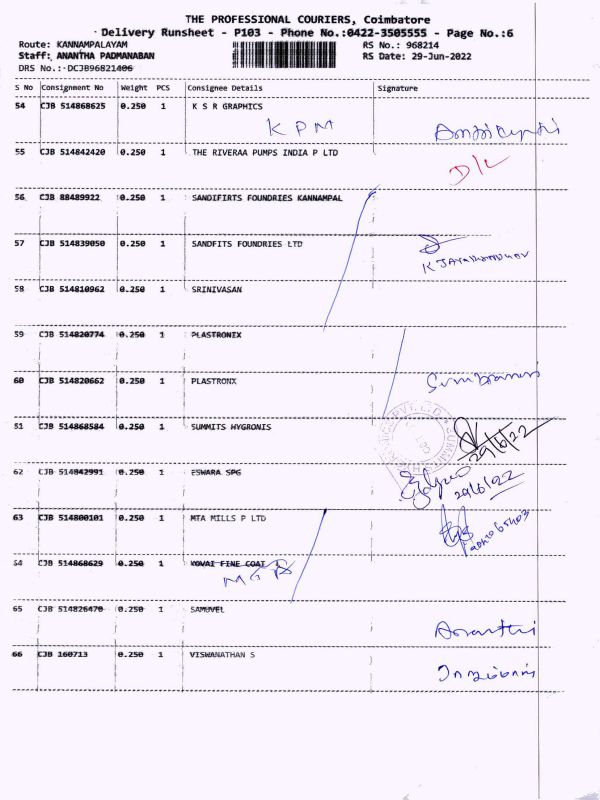 THE PROFESSIONAL COURIERS, Coimbatore
Delivery Runsheet - P103 - Phone No.:0422-3505555 - Page No.:6
Route: KANNAMPALAYAM RS No.: 968214
Staff: ANANTHA PADMANABAN RS Date: 29-Jun-2022
DRS No.:-DCJB96821406
S No Consignment No Weight PCS Consignee Details Signature
54 CJB 514868625 0.250 1 K S R GRAPHICS
K P M
55 CJB 514842420 0.250 1 THE RIVERAA PUMPS INDIA P LTD
D/L
56 CJB 88489922 0.250 1 SANDIFIRTS FOUNDRIES KANNAMPAL
57 CJB 514839050 0.250 1 SANDFITS FOUNDRIES LTD
58 CJB 514810962 0.250 1 SRINIVASAN
59 CJB 514820774 0.250 1 PLASTRONIX
60 CJB 514820662 0.250 1 PLASTRONX
61 CJB 514868584 0.250 1 SUMMITS HYGRONIS
29/6/22
62 CJB 514842991 0.250 1 ESWARA SPG
29/6/22
63 CJB 514800101 0.250 1 MTA MILLS P LTD
64 CJB 514868629 0.250 1 KOVAI FINE COAT
65 CJB 514826470 0.250 1 SAMUVEL
66 CJB 160713 0.250 1 VISWANATHAN S